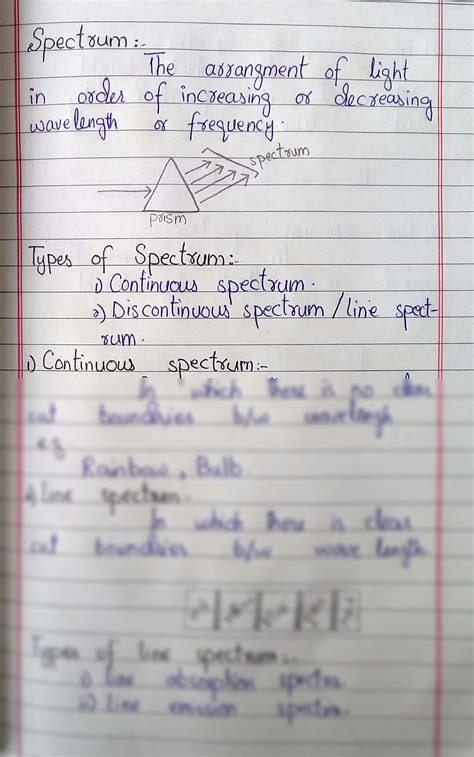 Spectrum:-
The arrangment of light
in order of increasing or decreasing
wavelength or frequency.
spectrum
prism
Types of Spectrum:-
1) Continuous spectrum.
2) Discontinuous spectrum / line spect-
rum.
1) Continuous spectrum:-
In which there is no clear
cut boundries b/w wavelengh
e.g
Rainbow, Bulb.
2) Line spectrum.
In which there is clear
cut boundries b/w wave length
Types of line spectrum:-
i) line absorption spectra.
ii) Line emission spectra.